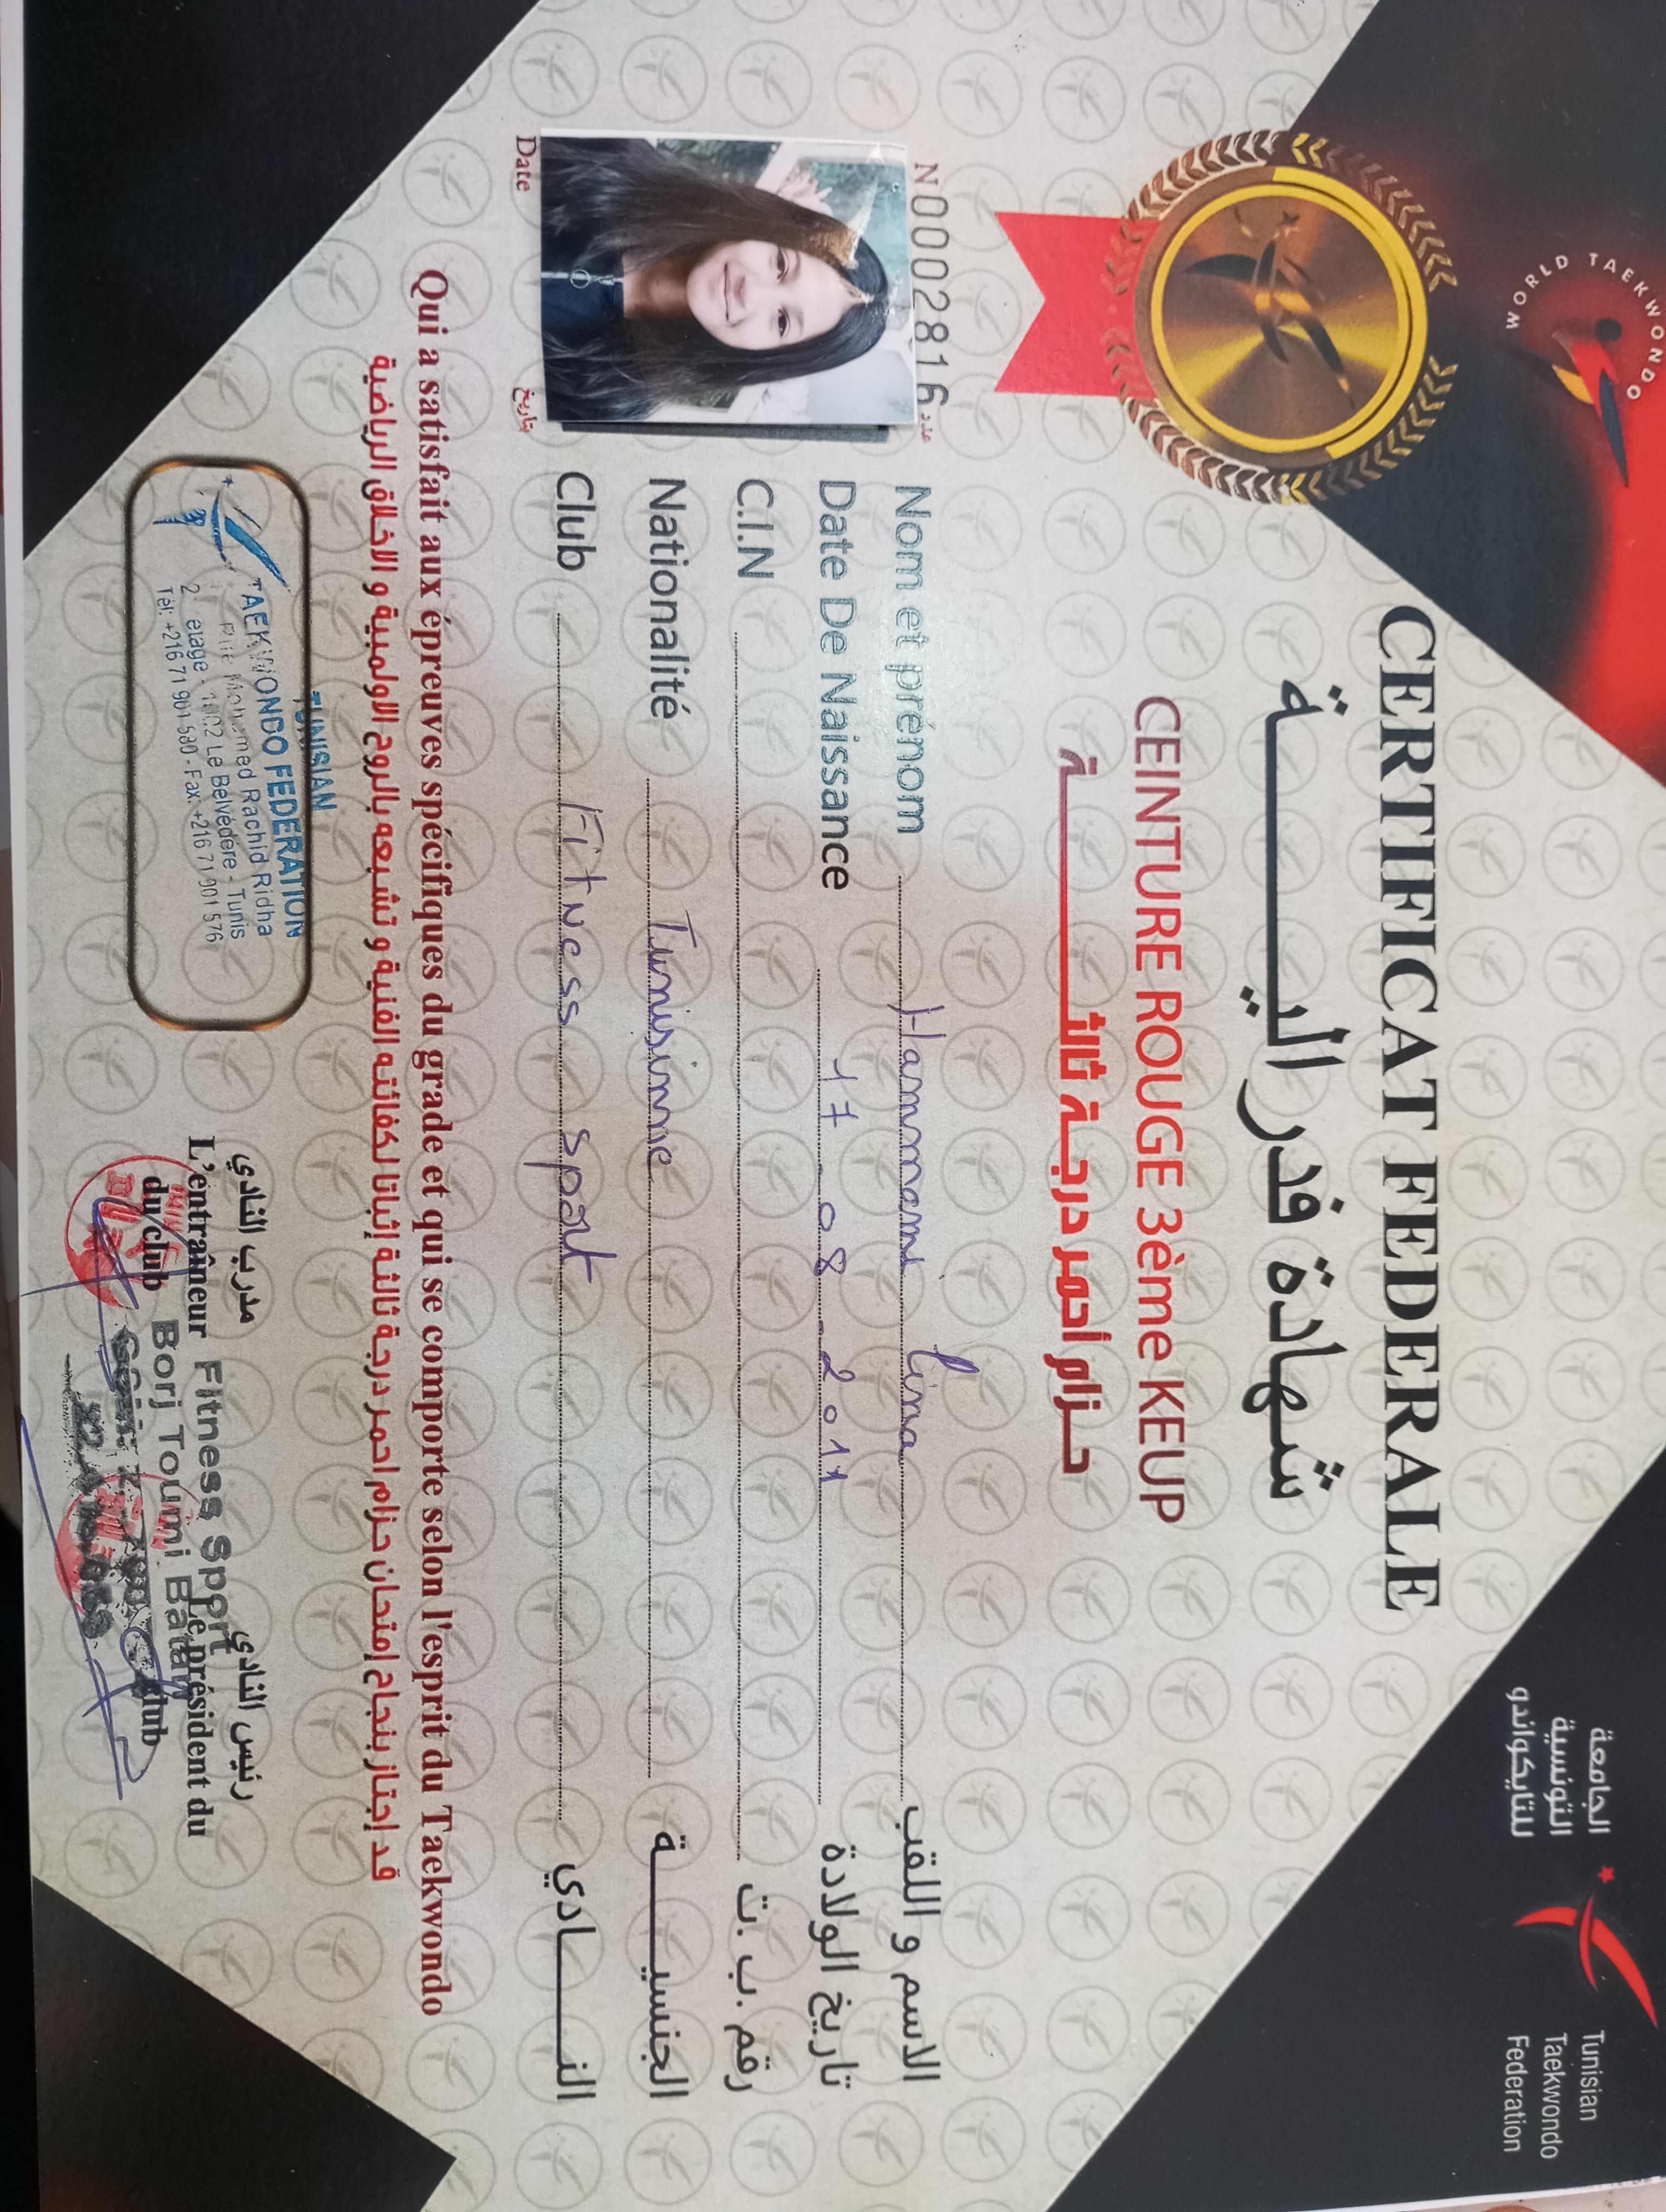 WORLD TAEKWONDO
الجامعة
التونسية
للتايكواندو
Tunisian
Taekwondo
Federation
CERTIFICAT FEDERALE
شهادة فدراليـــــــة
CEINTURE ROUGE 3ème KEUP
حـزام أحمر درجـة ثالثـــــــة
N 00002816 عدد
Nom et prénom Hammami lina الاسم و اللقب
Date De Naissance 17 - 08 - 2011 تاريخ الولادة
C.I.N رقم .ب .ت
Nationalité Tunisinne الجنسيـــــة
Club Fitness sport النـــــادي
Date بتاريخ
Qui a satisfait aux épreuves spécifiques du grade et qui se comporte selon l'esprit du Taekwondo
قد إجتاز بنجاح إمتحان حزام احمر درجة ثالثة إثباتا لكفائته الفنية و تشبعه بالروح الاولمبية و الاخلاق الرياضية
TUNISIAN
TAEKWONDO FEDERATION
Rue Mohamed Rachid Ridha
2 étage - 1002 Le Belvédère - Tunis
Tél: +216 71 901 580 - Fax: +216 71 901 576
مدرب النادي
L'entraîneur
du club
رئيس النادي
Le président du
club
Fitness Sport
Borj Toumi Batan